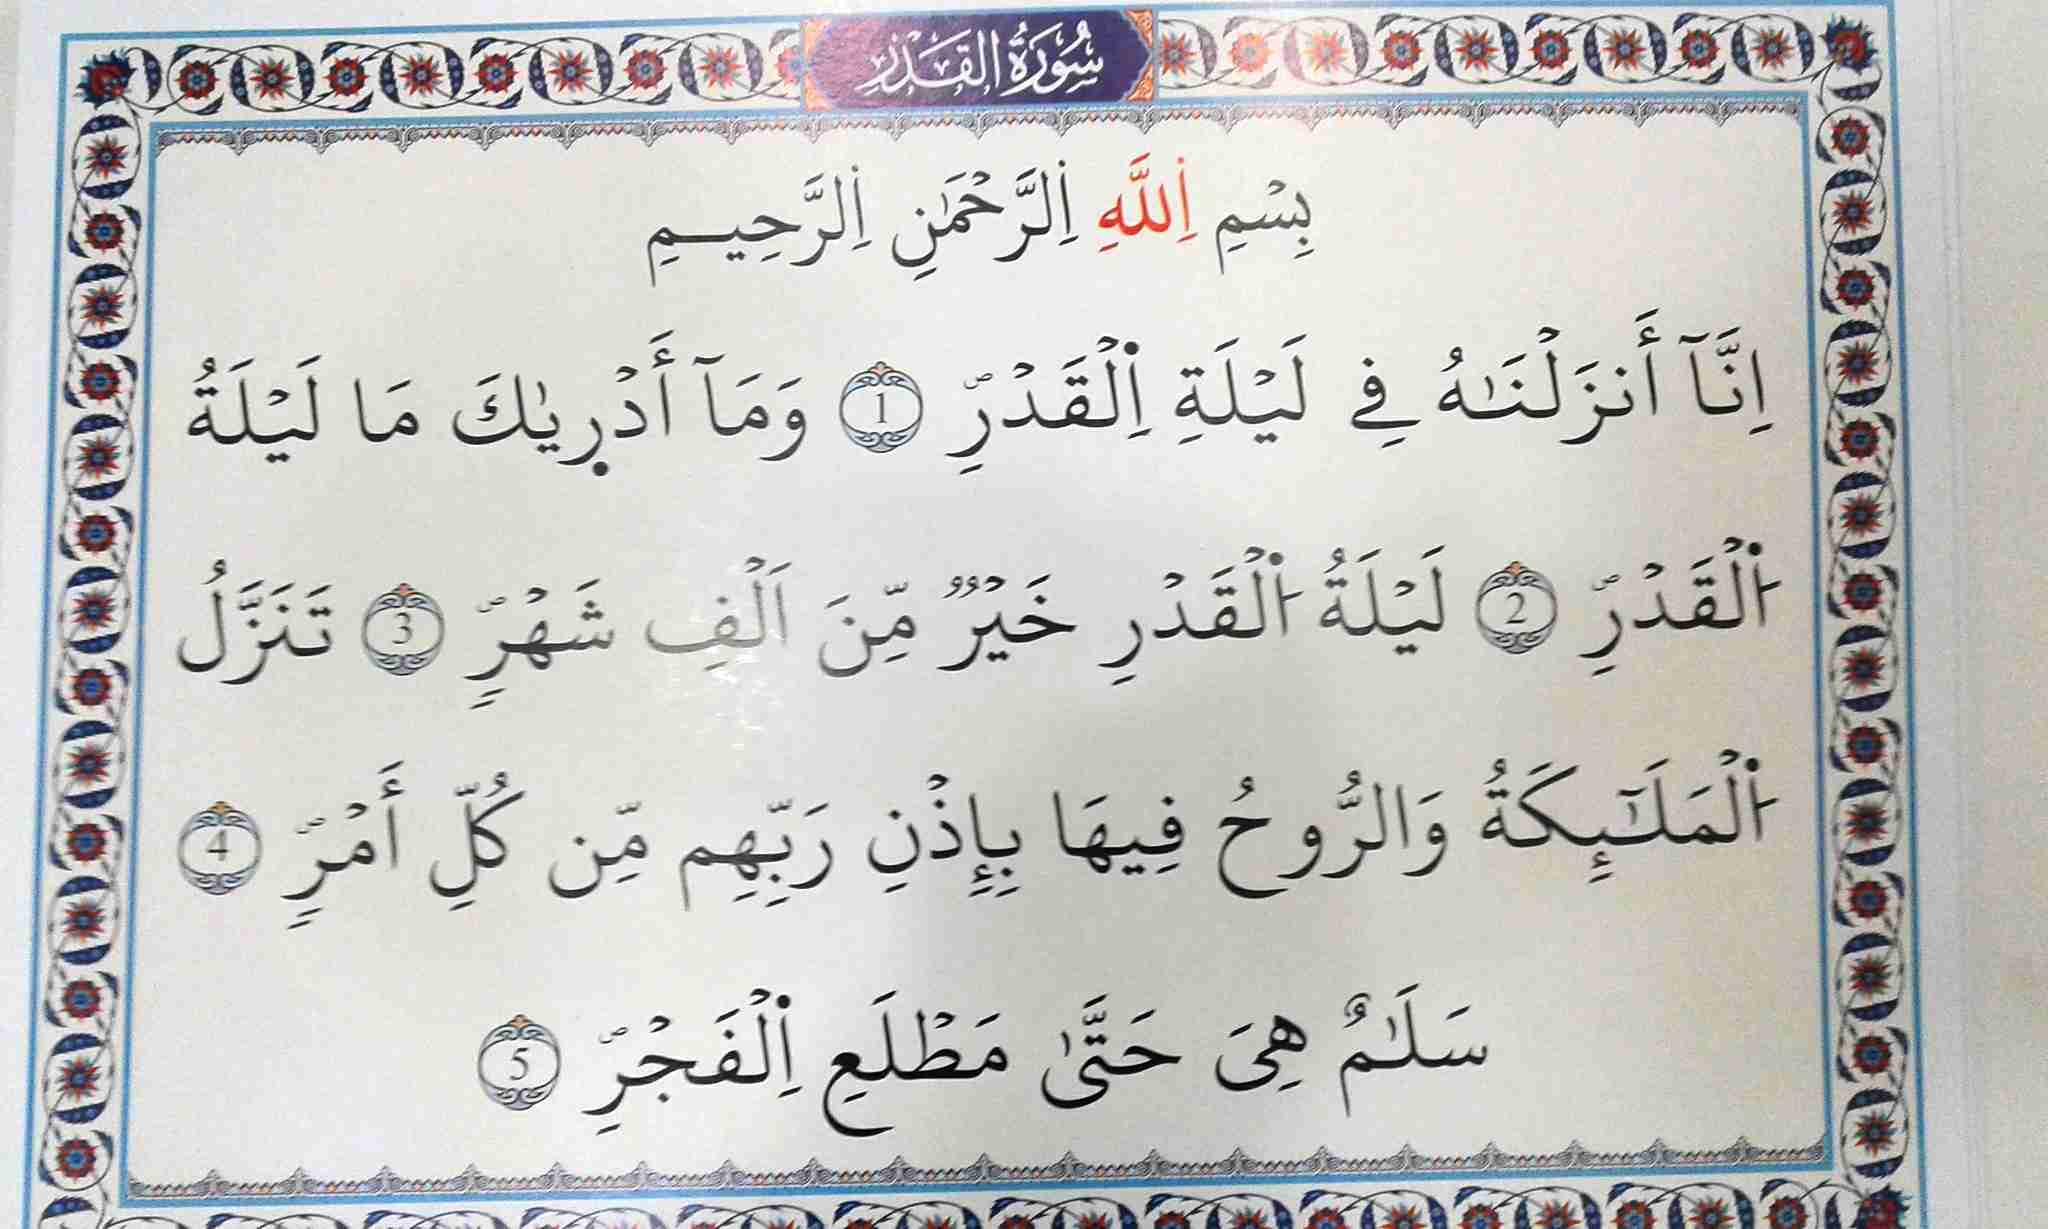 سُورَةُ الْقَدْرِ
بِسْمِ اِ۬للَّهِ اِ۬لرَّحْمَٰنِ اِ۬لرَّحِيمِ
اِنَّآ أَنزَلْنَٰهُ فِے لَيْلَةِ اِ۬لْقَدْرِۖ 1 وَمَآ أَدْر۪يٰكَ مَا لَيْلَةُ
اُ۬لْقَدْرِۖ 2 لَيْلَةُ اُ۬لْقَدْرِ خَيْرٌ مِّنَ اَلْفِ شَهْرٍۖ 3 تَنَزَّلُ
اُ۬لْمَلَٰٓئِكَةُ وَالرُّوحُ فِيهَا بِإِذْنِ رَبِّهِم مِّن كُلِّ أَمْرٍۖ 4
سَلَٰمٌ هِيَ حَتَّىٰ مَطْلَعِ اِ۬لْفَجْرِۖ 5